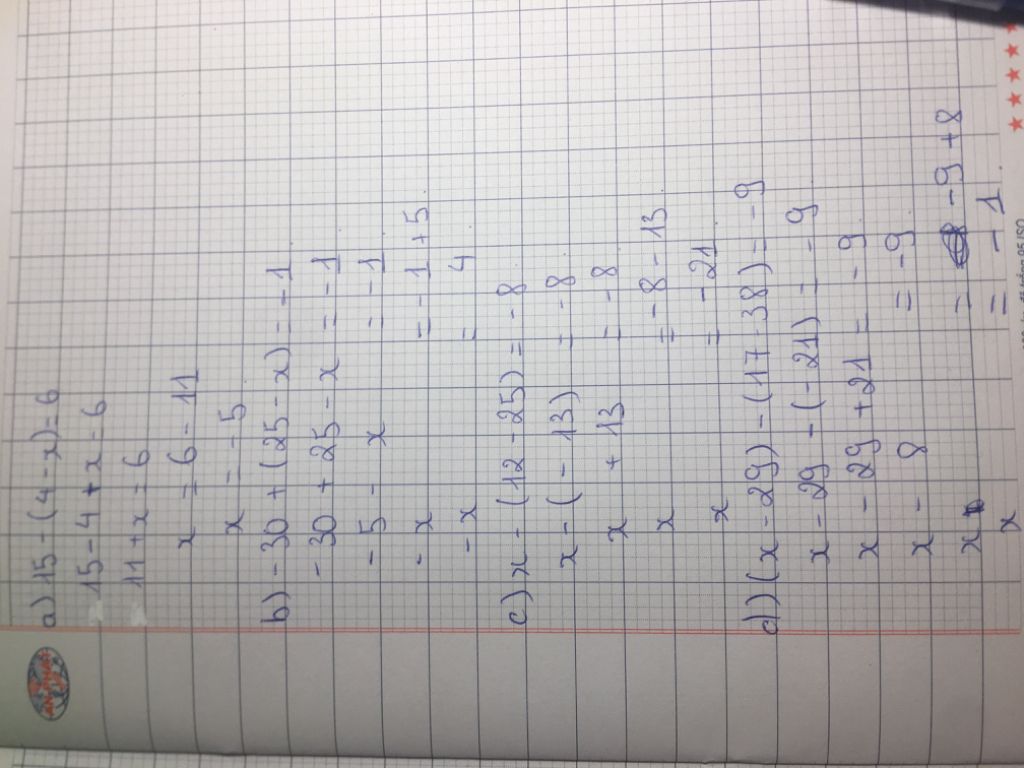 a) 15 - (4 - x) = 6
15 - 4 + x = 6
11 + x = 6
x = 6 - 11
x = - 5
b) - 30 + (25 - x) = - 1
- 30 + 25 - x = - 1
- 5 - x = - 1
- x = - 1 + 5
- x = 4
c) x - (12 - 25) = - 8
x - (- 13) = - 8
x + 13 = - 8
x = - 8 - 13
x = - 21
d) (x - 29) - (17 - 38) = - 9
x - 29 - (- 21) = - 9
x - 29 + 21 = - 9
x - 8 = - 9
x = - 9 + 8
x = - 1